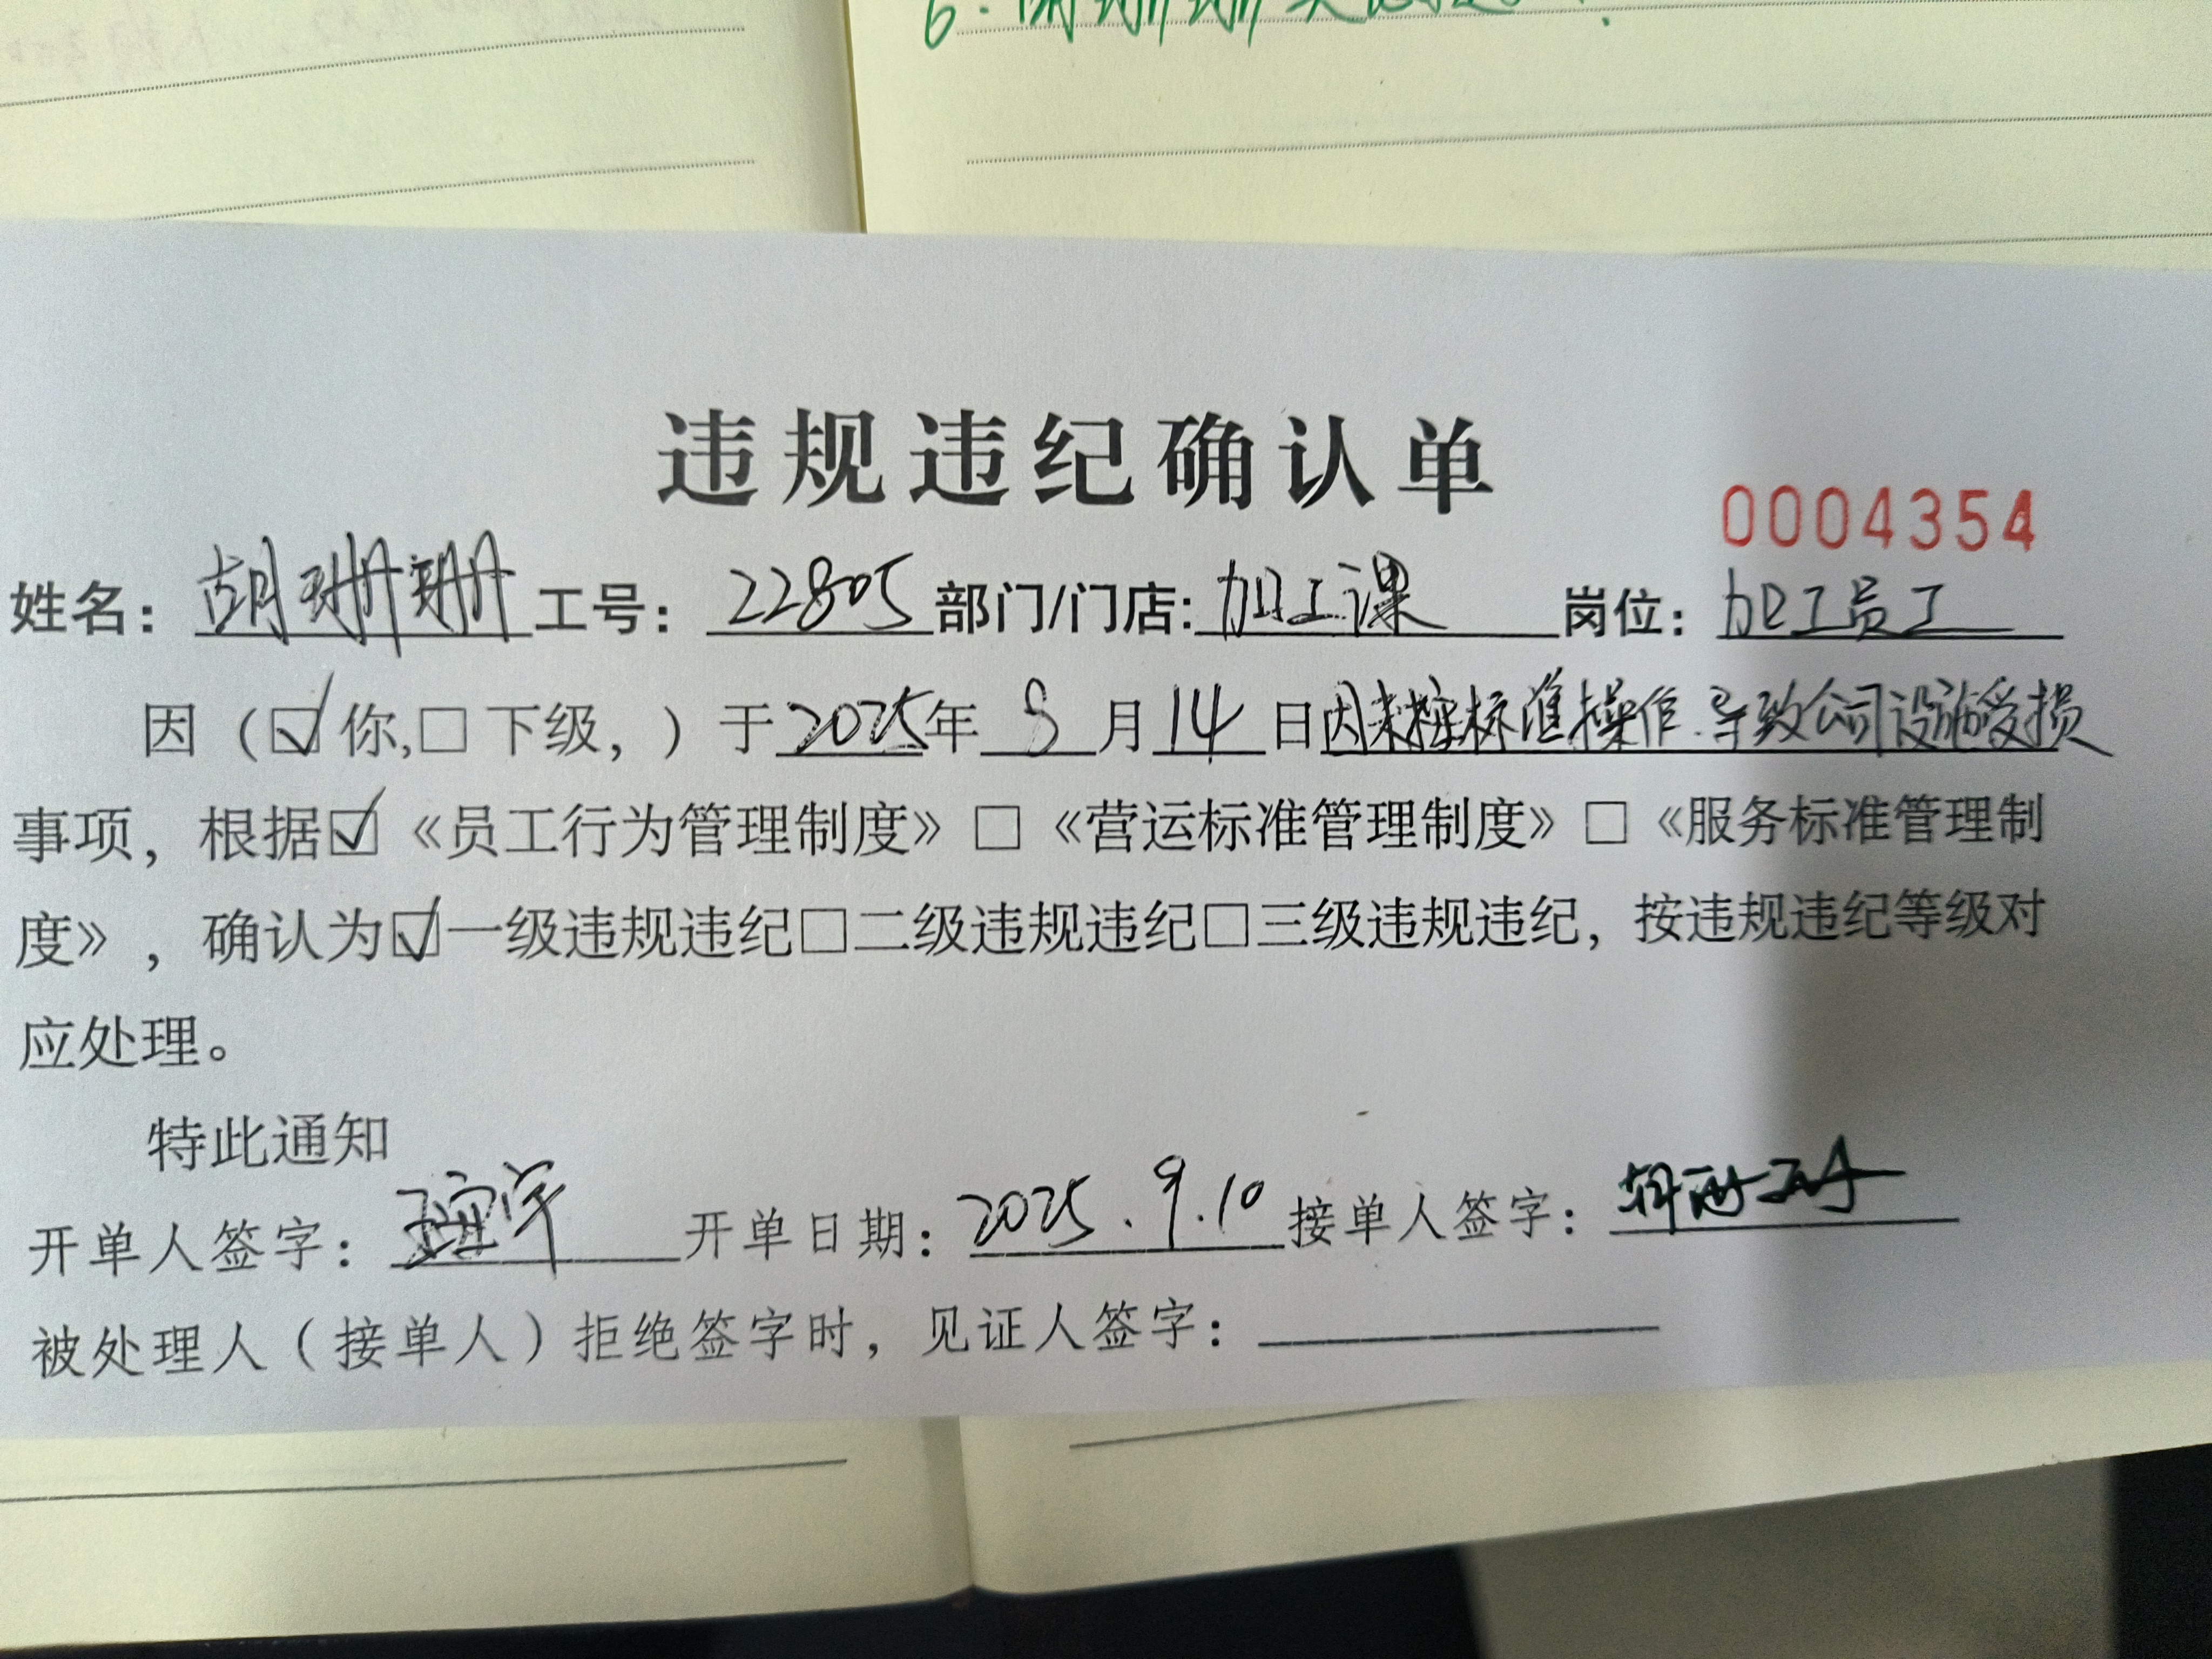 6.
违规违纪确认单
0004354
姓名：胡珊珊 工号：22805 部门/门店：加工课 岗位：加工员工
因（☑你,☐下级，）于2025年8月14日因未按标准操作.导致公司设施受损
事项，根据☑《员工行为管理制度》☐《营运标准管理制度》☐《服务标准管理制
度》，确认为☑一级违规违纪☐二级违规违纪☐三级违规违纪，按违规违纪等级对
应处理。
特此通知
开单人签字： 开单日期：2025.9.10 接单人签字：
被处理人（接单人）拒绝签字时，见证人签字：